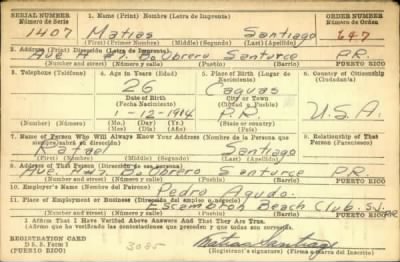 SERIAL NUMBER 1. Name (Print) Nombre (Letra de Imprenta) ORDER NUMBER
Número de Serie Número de Orden
1407 Matias Santiago 647
(First) (Primer Nombre) (Middle) (Segundo) (Last) (Apellido)
2. Address (Print) Dirección (Letra de Imprenta)
Ave A #47 Bo Obrero Santurce P.R.
Number and street) (Town) (Pueblo) (Barrio) PUERTO RICO
3. Telephone (Teléfono) 4. Age in Years (Edad) 5. Place of Birth (Lugar de Nacimiento) 6. Country of Citizenship (Ciudadanía)
26 Caguas
Date of Birth City or Town
(Fecha Nacimiento) (Ciudad o Pueblo)
-12-1914 P.R. U.S.A.
(Mo.) (Day) (Yr.) (State or country)
(Mes) (Día) (Año) (Estado o país)
7. Name of Person Who Will Always Know Your Address (Nombre de la Persona que siempre sabrá su dirección) 8. Relationship of That Person (Parentesco)
Rafael Santiago
(First) (Nombre) (Middle) (Segundo) (Last) (Apellido)
9. Address of That Person (Dirección de esa persona)
Ave Bo Obrero Santurce P.R.
Number and street) (Town) (Pueblo) (Barrio) PUERTO RICO
10. Employer's Name (Nombre del Patrono)
Pedro Agudo
11. Place of Employment or Business (Dirección del empleo o negocio)
Escambron Beach Club. S.J. P.R.
I Affirm That I Have Verified Above Answers and That They Are True.
Afirmo que he verificado las contestaciones que preceden y que todas son correctas.
REGISTRATION CARD
D. S. S. Form 1 3085 Matias Santiago
(PUERTO RICO) (Registrant's signature) (Firma a puño y letra del Inscrito)